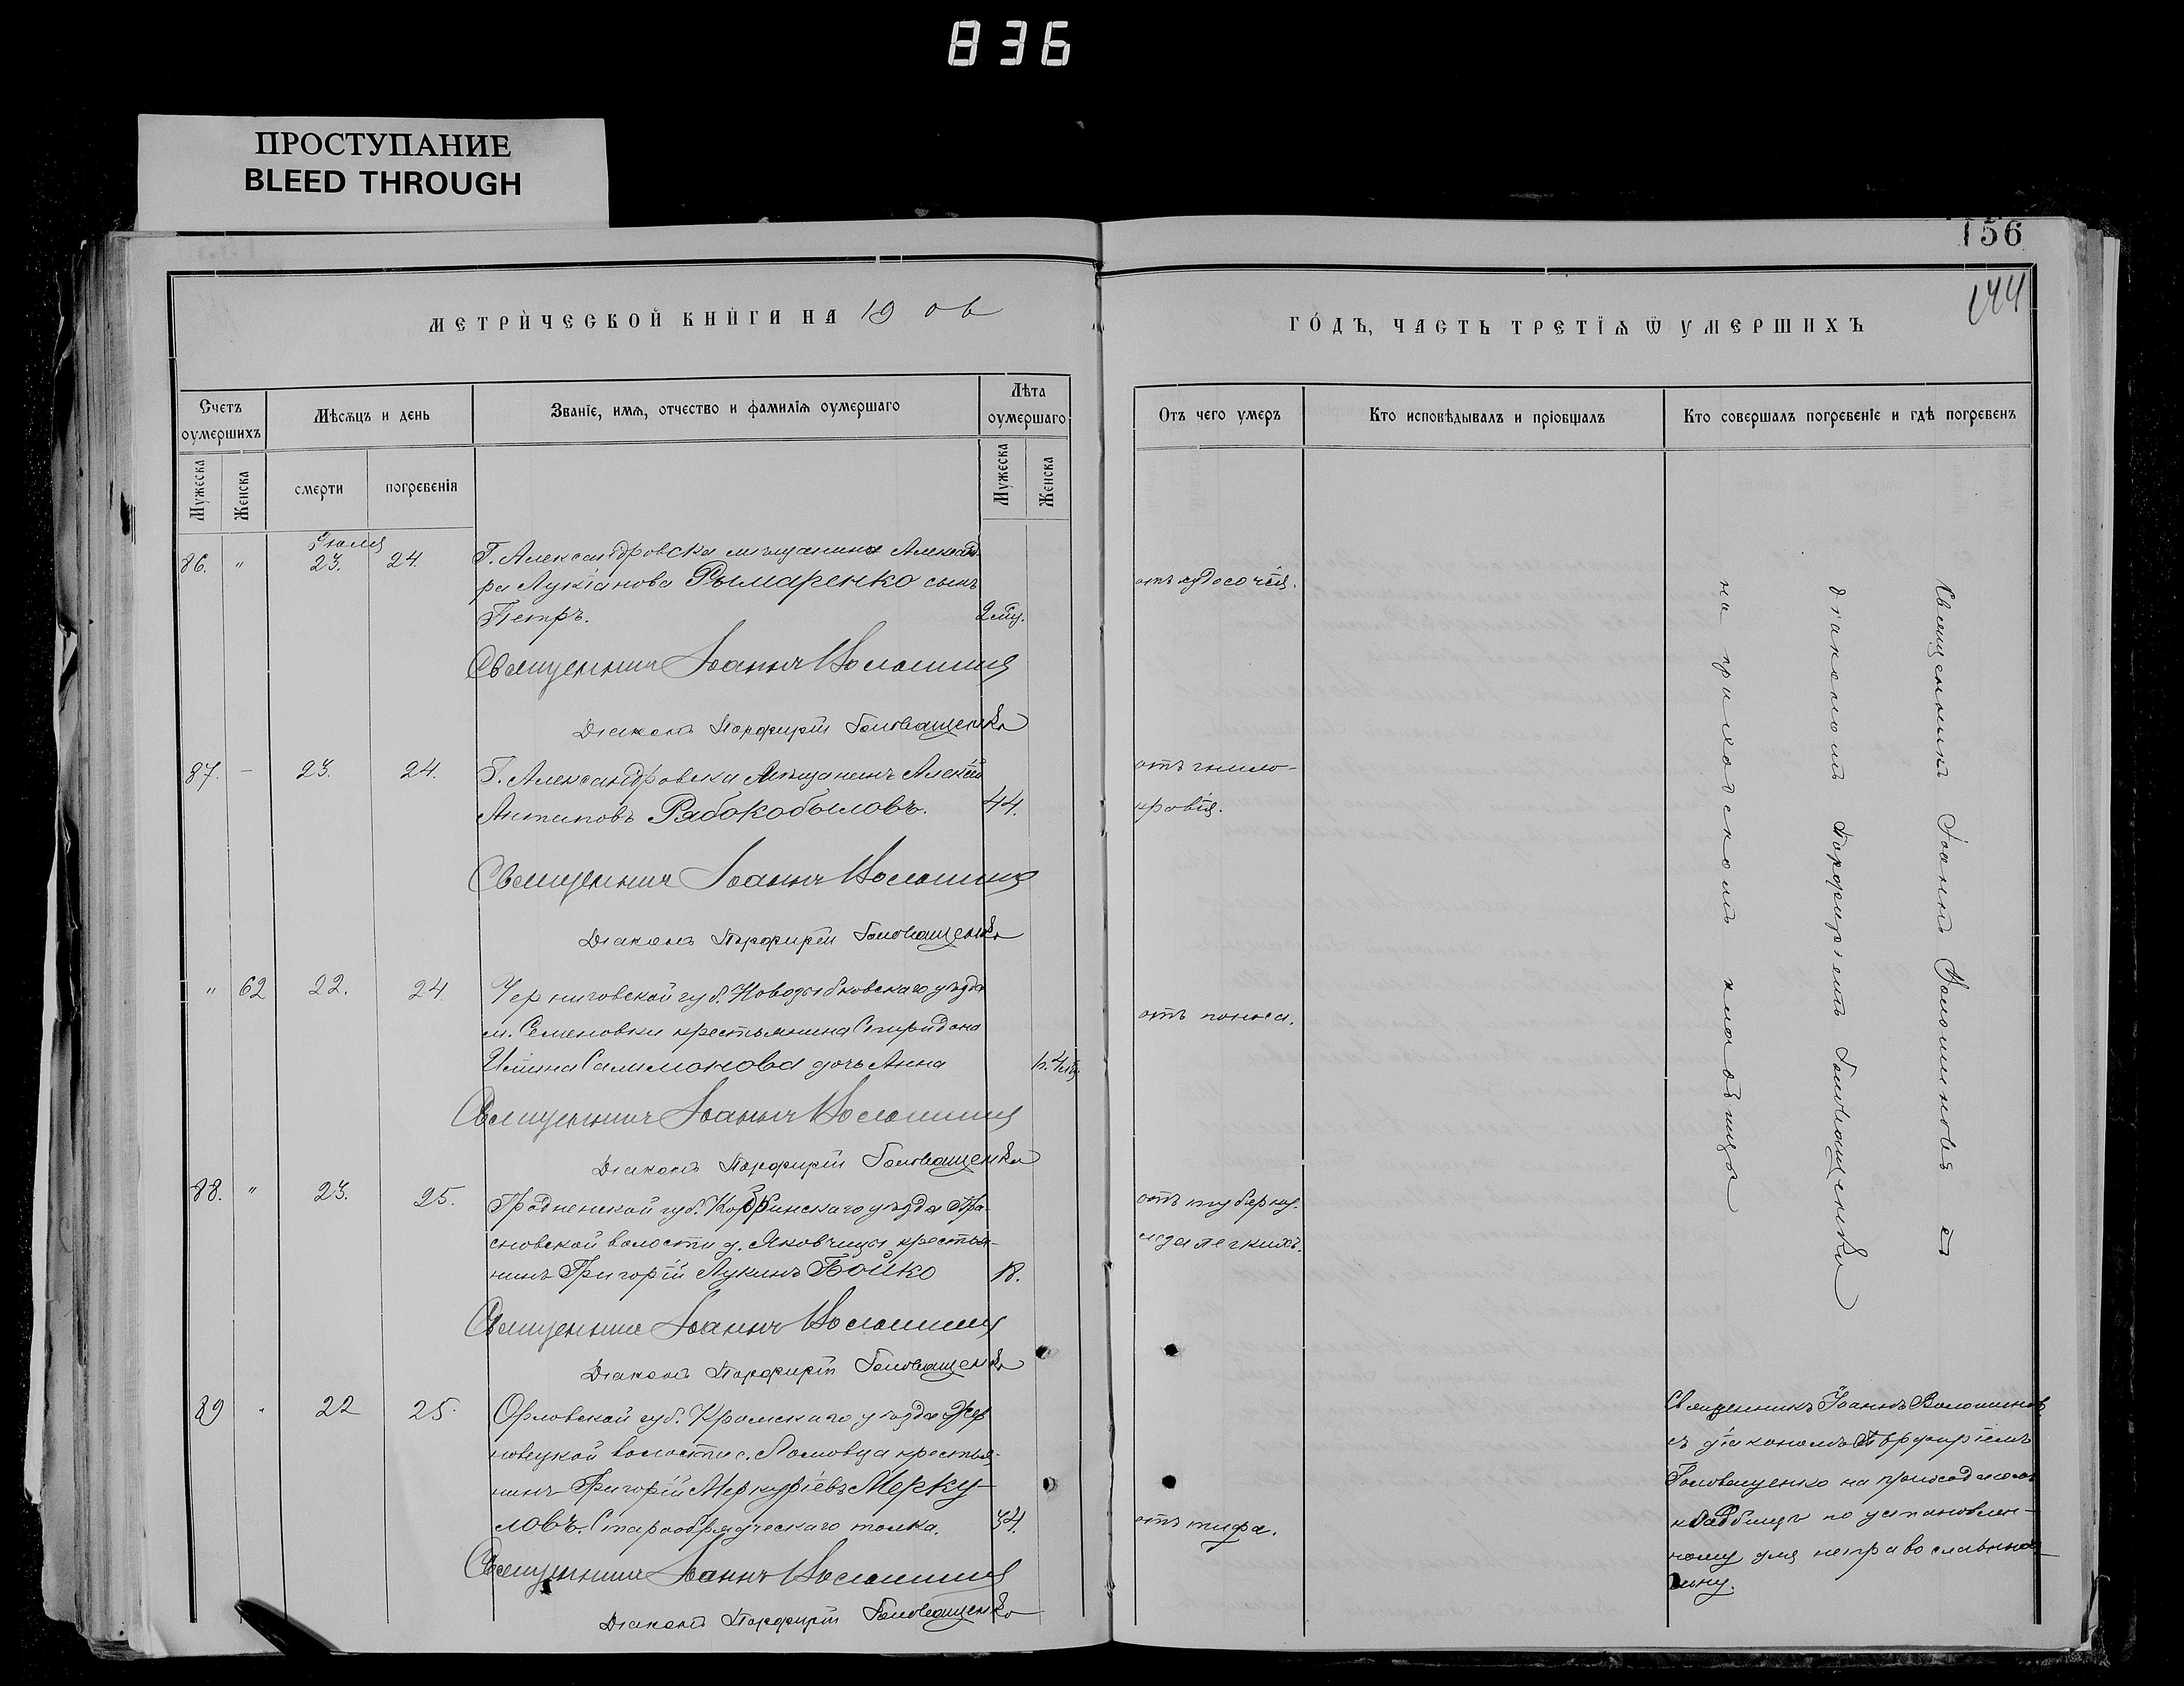 836
ПРОСТУПАНИЕ
BLEED THROUGH
156
144
МЕТРИЧЕСКОЙ КНИГИ НА 1906
ГОДЪ, ЧАСТЬ ТРЕТІЯ Ѿ УМЕРШИХЪ
Счетъ оумершихъ
Мѣсяцъ и день
Званіе, имя, отчество и фамилія оумершаго
Лѣта оумершаго
Отъ чего умеръ
Кто исповѣдывалъ и пріобщалъ
Кто совершалъ погребеніе и гдѣ погребенъ
Мужеска
Женска
смерти
погребенія
Мужеска
Женска
Іюля
86. " 23. 24. Г. Александровска мѣщанина Александ-
ра Лукіанова Рымаренко сынъ
Петръ. 2 мц.
отъ худосочія.
Священникъ Іоаннъ Волошинъ
Діаконъ Порфирій Головащенко
87. – 23. 24. Г. Александровска мѣщанинъ Алексій
Антиповъ Рябокобыловъ. 44.
отъ гнило-
кровія.
Священникъ Іоаннъ Волошинъ
Діаконъ Порфирій Головащенко
" 62 22. 24. Черниговской губ. Новозыбковскаго уѣзда
м. Семеновки крестьянина Спиридона
Салимонова дочь Анна
отъ поноса.
Священникъ Іоаннъ Волошинъ
Діаконъ Порфирій Головащенко
88. " 23. 25. Гродненской губ. Кобринскаго уѣзда
волости д. Яковчицы крестья-
нинъ Григорій Лукинъ Бойко 18.
отъ туберку-
леза легкихъ.
Священникъ Іоаннъ Волошинъ
Діаконъ Порфирій Головащенко
89 " 22 25. Орловской губ. Кромскаго уѣзда
новецкой волости с. Ломовца крестья-
нинъ Григорій Меркуріевъ Мерку-
ловъ. Старообрядческаго толка. 34.
отъ тифа.
Священникъ Іоаннъ Волошинъ
Діаконъ Порфирій Головащенко
Священникъ Іоаннъ Волошиновъ съ
діакономъ Порфиріемъ Головащенко
на приходскомъ кладбищѣ
Священникъ Іоаннъ Волошиновъ
съ діакономъ Порфиріемъ
Головащенко на приходскомъ
кладбищѣ по установлен-
ному для неправославныхъ
чину.